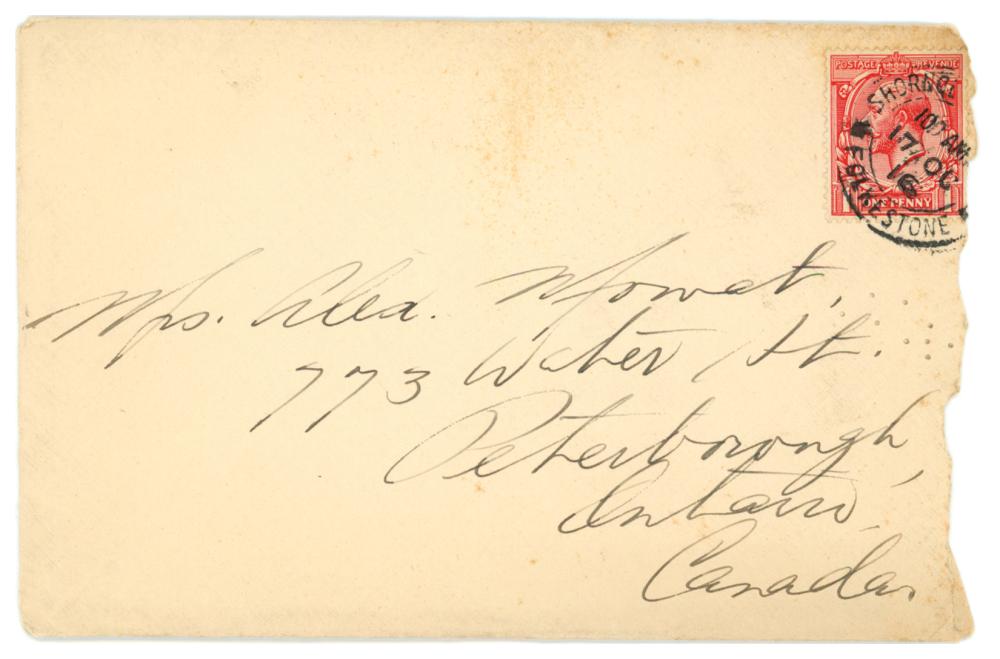 POSTAGE REVENUE
SHORNCL
107 AM
17 OC
16
FOLKESTONE
ONE PENNY
Mrs. Alex. Mowat,
773 Water St.
Peterborough,
Ontario,
Canada.